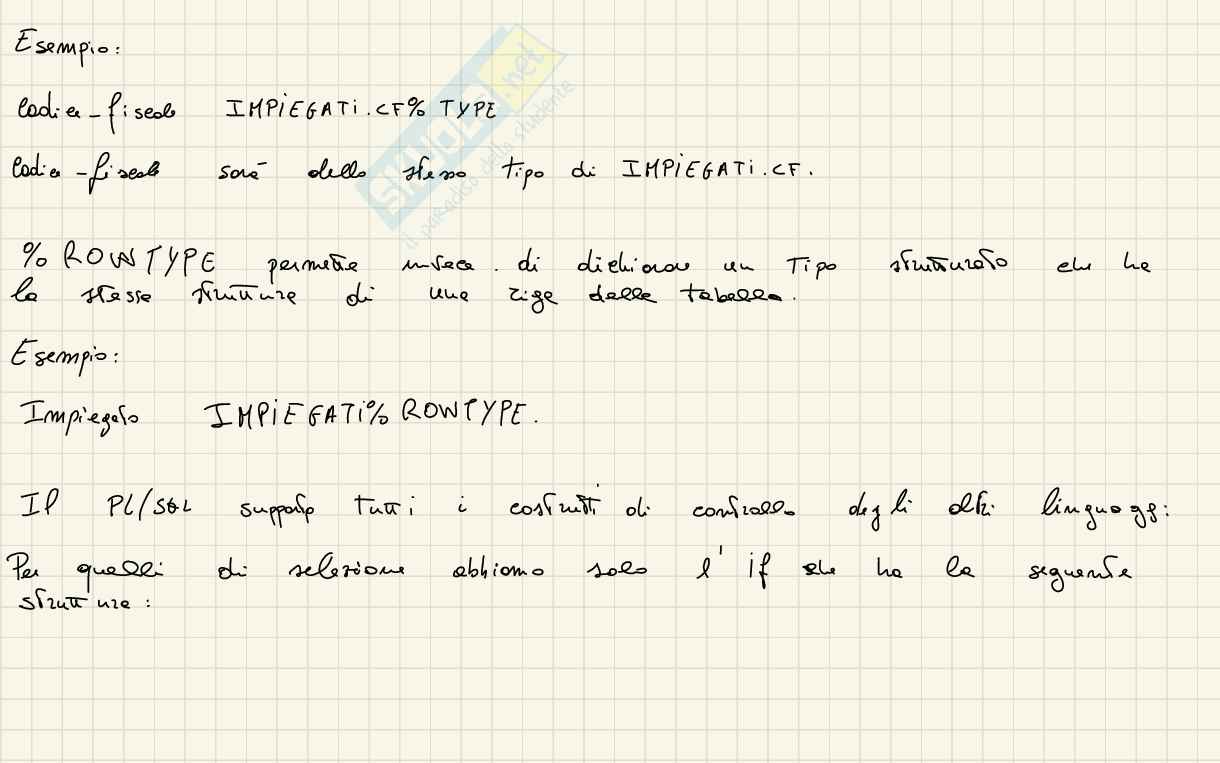 Esempio:
Codice_fiscale IMPIEGATI.CF%TYPE
Codice_fiscale sarà dello stesso tipo di IMPIEGATI.CF.
%ROWTYPE permette invece di dichiarare un tipo strutturato che ha
la stessa struttura di una riga della tabella.
Esempio:
Impiegato IMPIEGATI%ROWTYPE.
Il PL/SQL supporta tutti i costrutti di controllo degli altri linguaggi:
Per quelli di selezione abbiamo solo l'if che ha la seguente
struttura:
SKUOLA.net
il paradiso dello studente